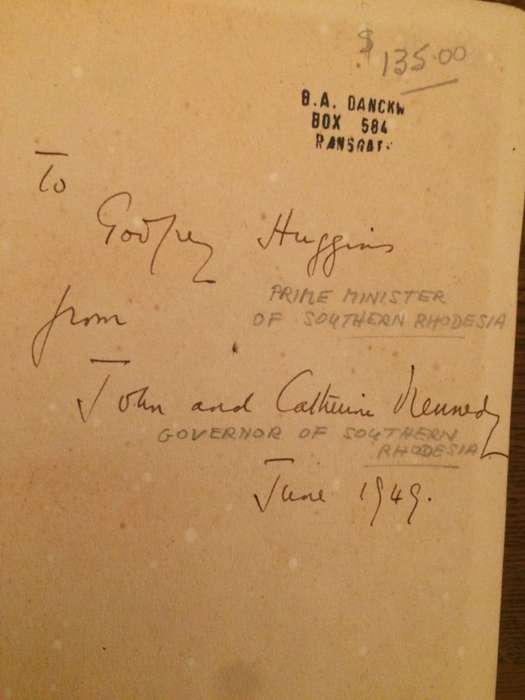 $135.00
B.A. DANCKW
BOX 584
RANSGAT
To
Godfrey Huggins
PRIME MINISTER
OF SOUTHERN RHODESIA
from
John and Catherine Kennedy
GOVERNOR OF SOUTHERN
RHODESIA
June 1949.